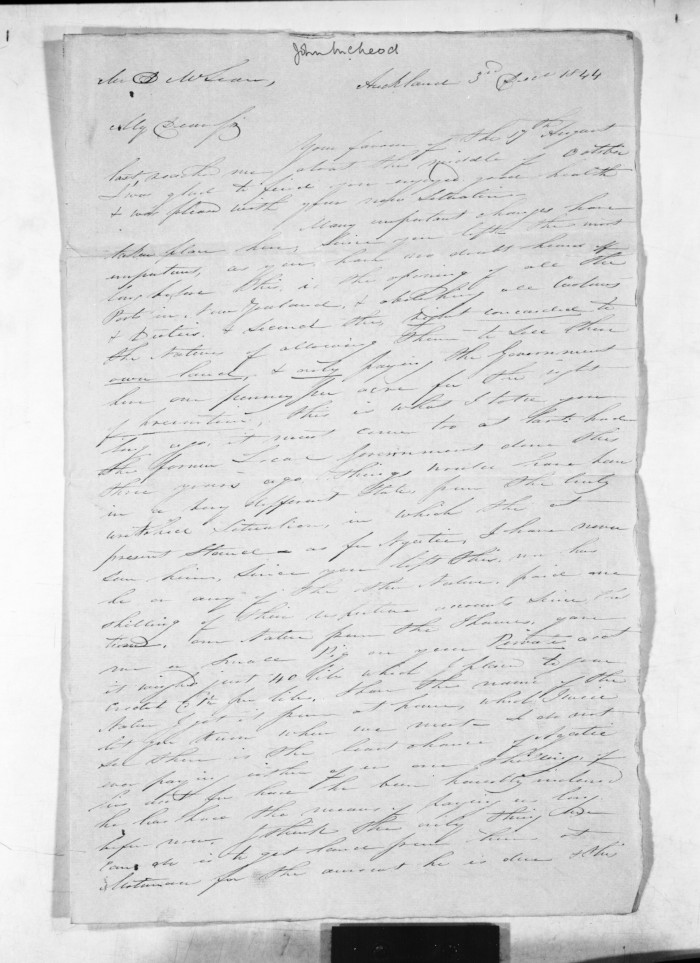 John McLeod
Mr D McLean,
Auckland 3rd Decr 1844
My Dear Sir
Your favour of the 17th August
last reached me about the middle of October
I was glad to find you enjoyed good health
& was pleased with your new Situation.
Many important changes have
taken place here, since you left, the most
important, as you have no doubt heard of
long before this, is the opening of all the
Ports in New Zealand, & abolishing all Customs
& Duties, & Second the right conceeded to
the Natives of allowing them to Sell their
own land, & only paying the Government
here one penny per acre for the right
of preemtion, this is what I told you
long ago it must come too at last: had
the former Local Government done this
three years ago things would have been
in a very different State, from the truly
wretched Situation, in which the at
present Stand as for I have never
Seen him, Since you left this, nor has
he or any of the other Natives paid me
shilling of their respective accounts Since the
time. One Native from the Thames, gave
me a Small Pig on your acct
it weighed just 40 libs which I placed to your
Credit @ per lib. I have the name of the
Native I got it from at home, which I will
let you know when we meet I do not
see there is the least chance of
ever paying either of us one Shilling, if
his debt for have he been honestly inclined
he has have the means of paying us long
before now. I think the only thing we
can do is to get land from them at
for the amount he is due & this